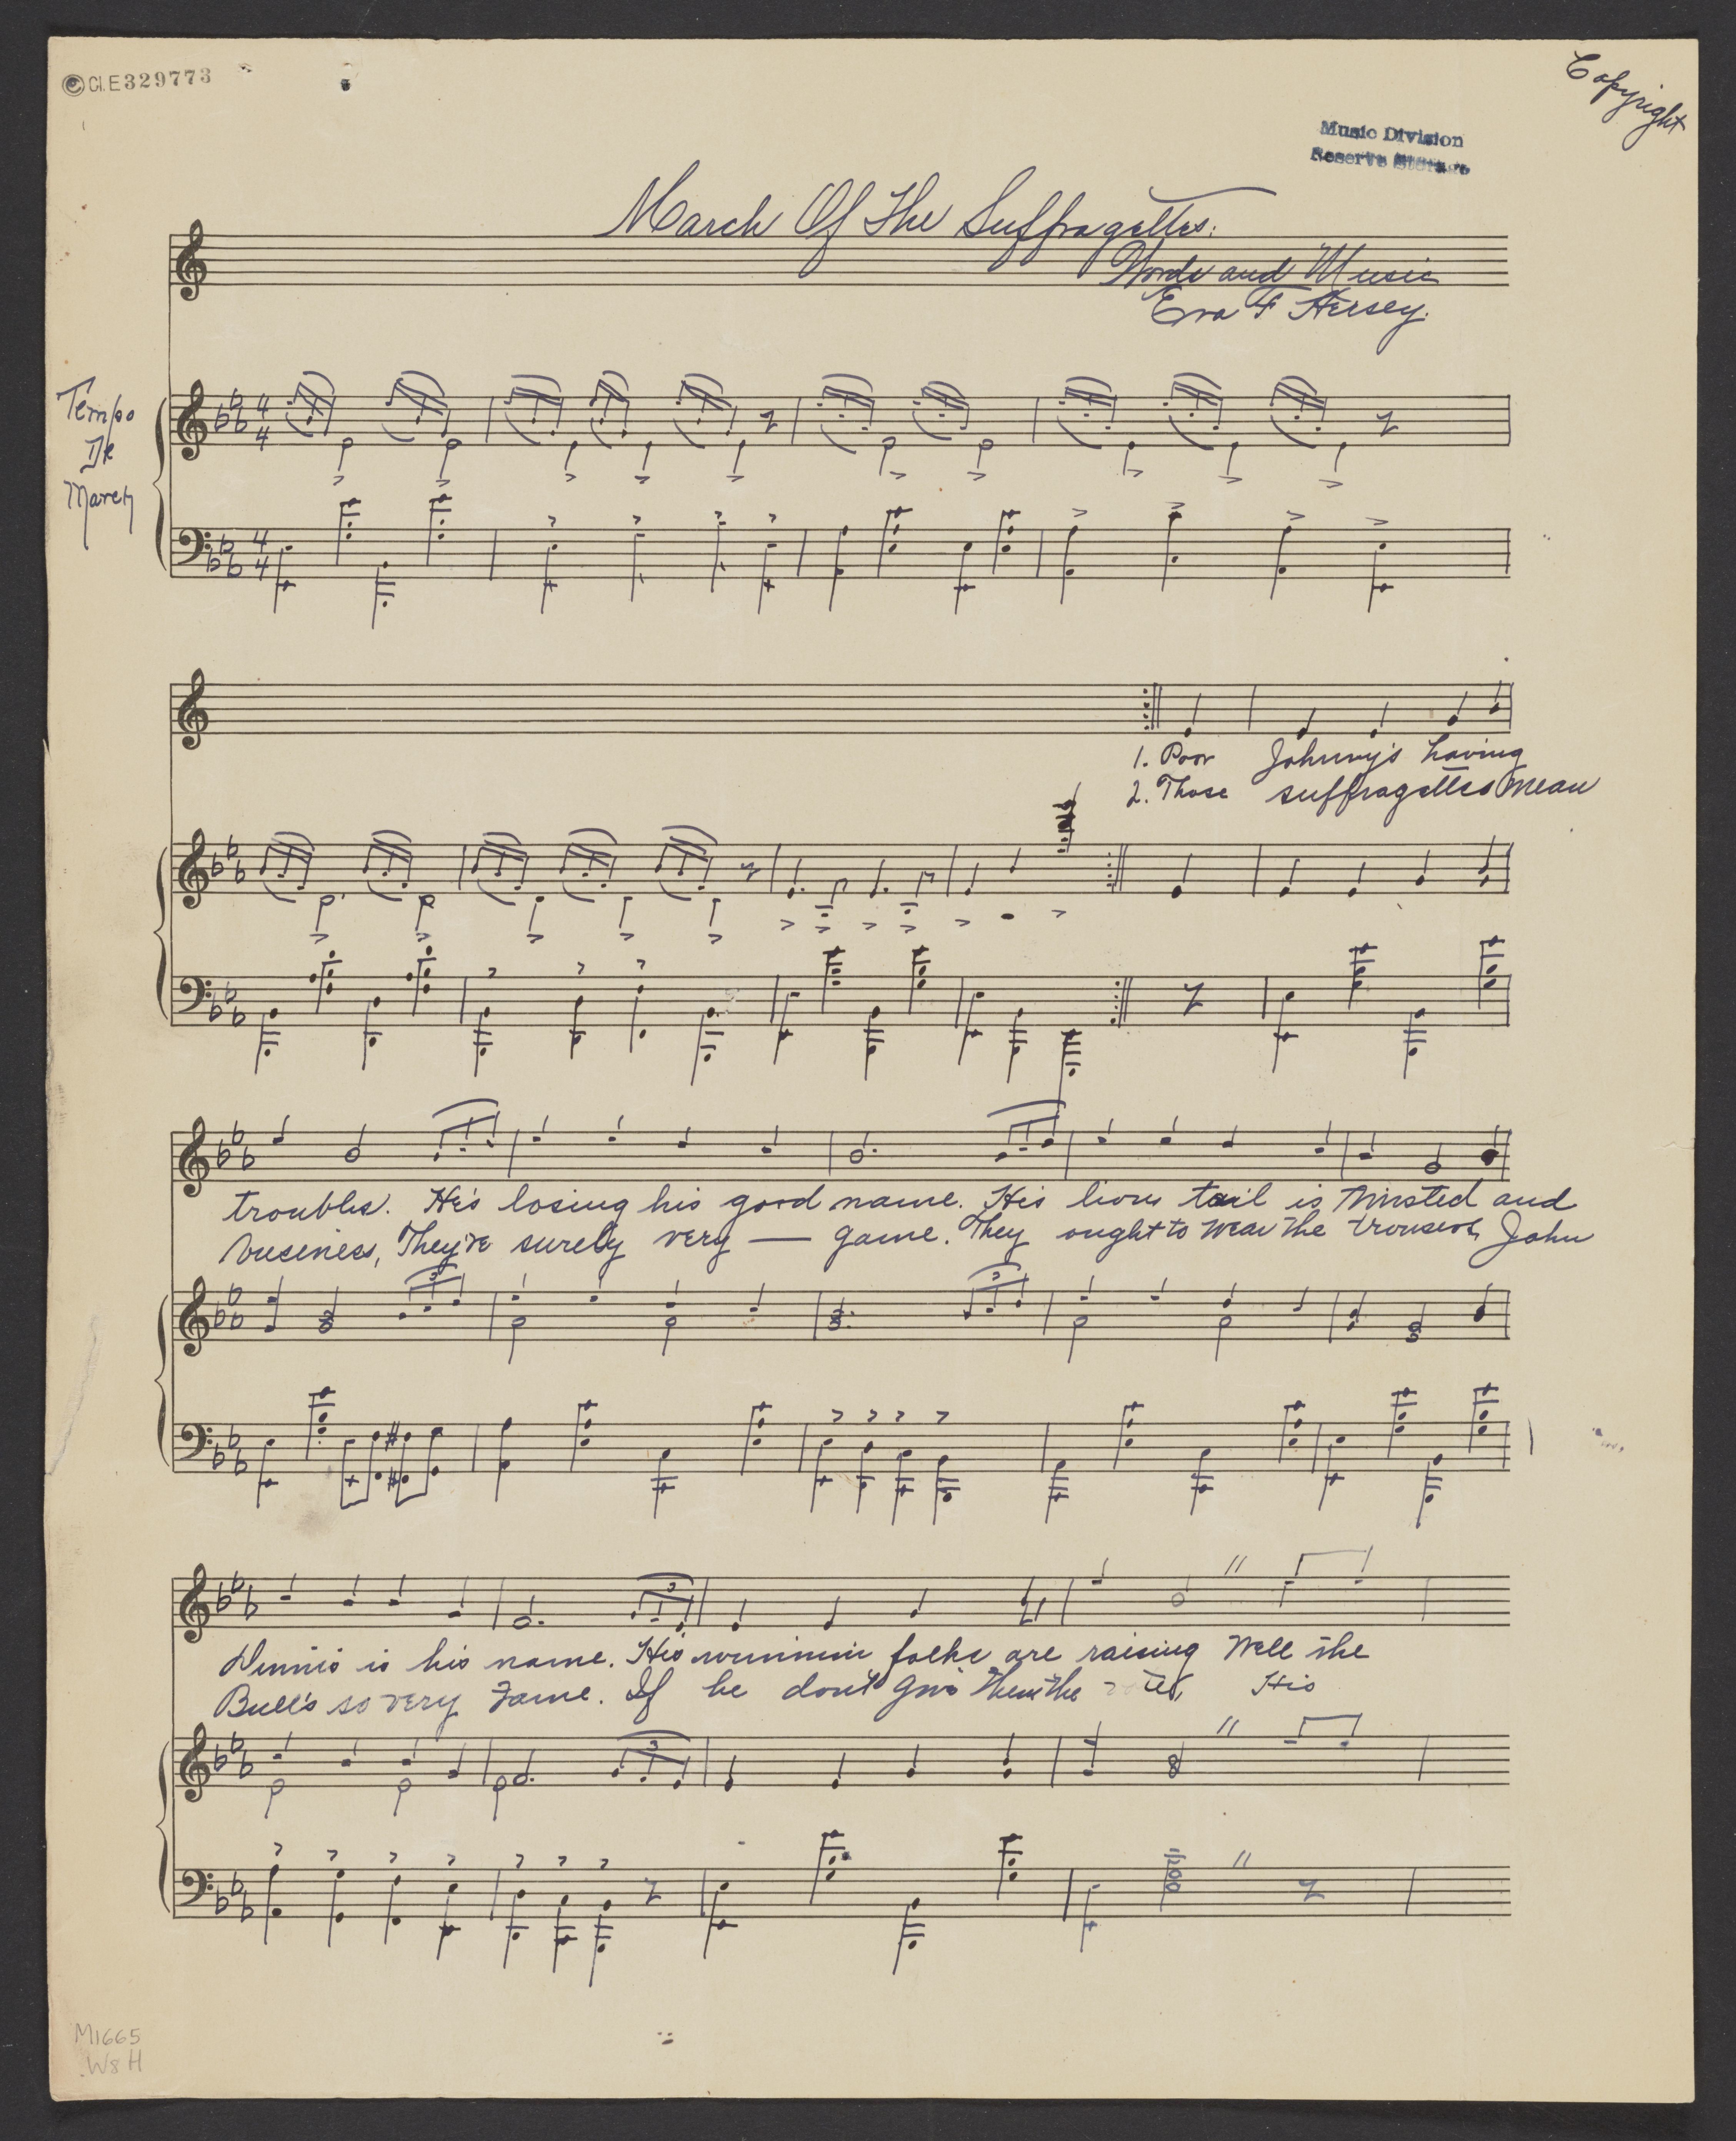 © Cl. E 329773
Copyright
Music Division
Reserve Storage
March Of The Suffragettes.
Words and Music
Eva F Hersey.
Tempo
De
March
4
4
4
4
1. Poor Johnny's having
2. Those suffragettes mean
troubles. He's losing his good name. His lions tail is twisted and
buseness, They're surely very — game. They ought to wear the trousers, John
3
3
Dennis is his name. His wimmin folks are raising Well the
Bull's so very tame. If he dont give them the His
3
3
M1665
W8H